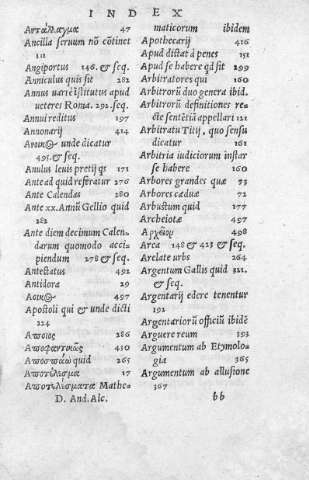 INDEX
Ἀντάλλαγμα 47
Ancilla seruum nō cōtinet
111
Angiportus 146. & seq.
Anniculus quis sit 282
Annus uarie īstitutus apud
ueteres Roma. 292. seq.
Annui reditus 197
Annonarij 414
unde dicatur
495. & seq.
Anulus leuis pretij qs 171
Ante ad quid referatur 276
Ante Calendas 280
Ante xx. Annū Gellio quid
282
Ante diem decimum Calen/
darum quomodo acci/
piendum 278 & seq.
Antestatus 492
Antidora 29
497
Apostoli qui & unde dicti
224
Ἄποιος 286
Ἀποφαντικῶς 430
quid 265
Ἀποτέλεσμα 17
Ἀποτελέσματα Mathe/
D. And. Alc.
maticorum ibidem
Apothecarij 416
Apud distat à penes 151
Apud se habere qd sit 299
Arbitratores qui 160
Arbitrorū duo genera ibid.
Arbitrorū definitiones re/
cte sentētiā appellari 121
Arbitratu Titij, quo sensu
dicatur 161
Arbitria iudiciorum instar
se habere 160
Arbores grandes quæ 73
Arbores cæduæ 72
Arbustum quid 177
Archeiotæ 497
498
Area 148 & 423 & seq.
Arelate urbs 264
Argentum Gallis quid 321.
& seq.
Argentarij edere tenentur
192
Argentariorū officiū ibidē
Arguere reum 152
Argumentum ab Etymolo/
gia 365
Argumentum ab allusione
367
bb